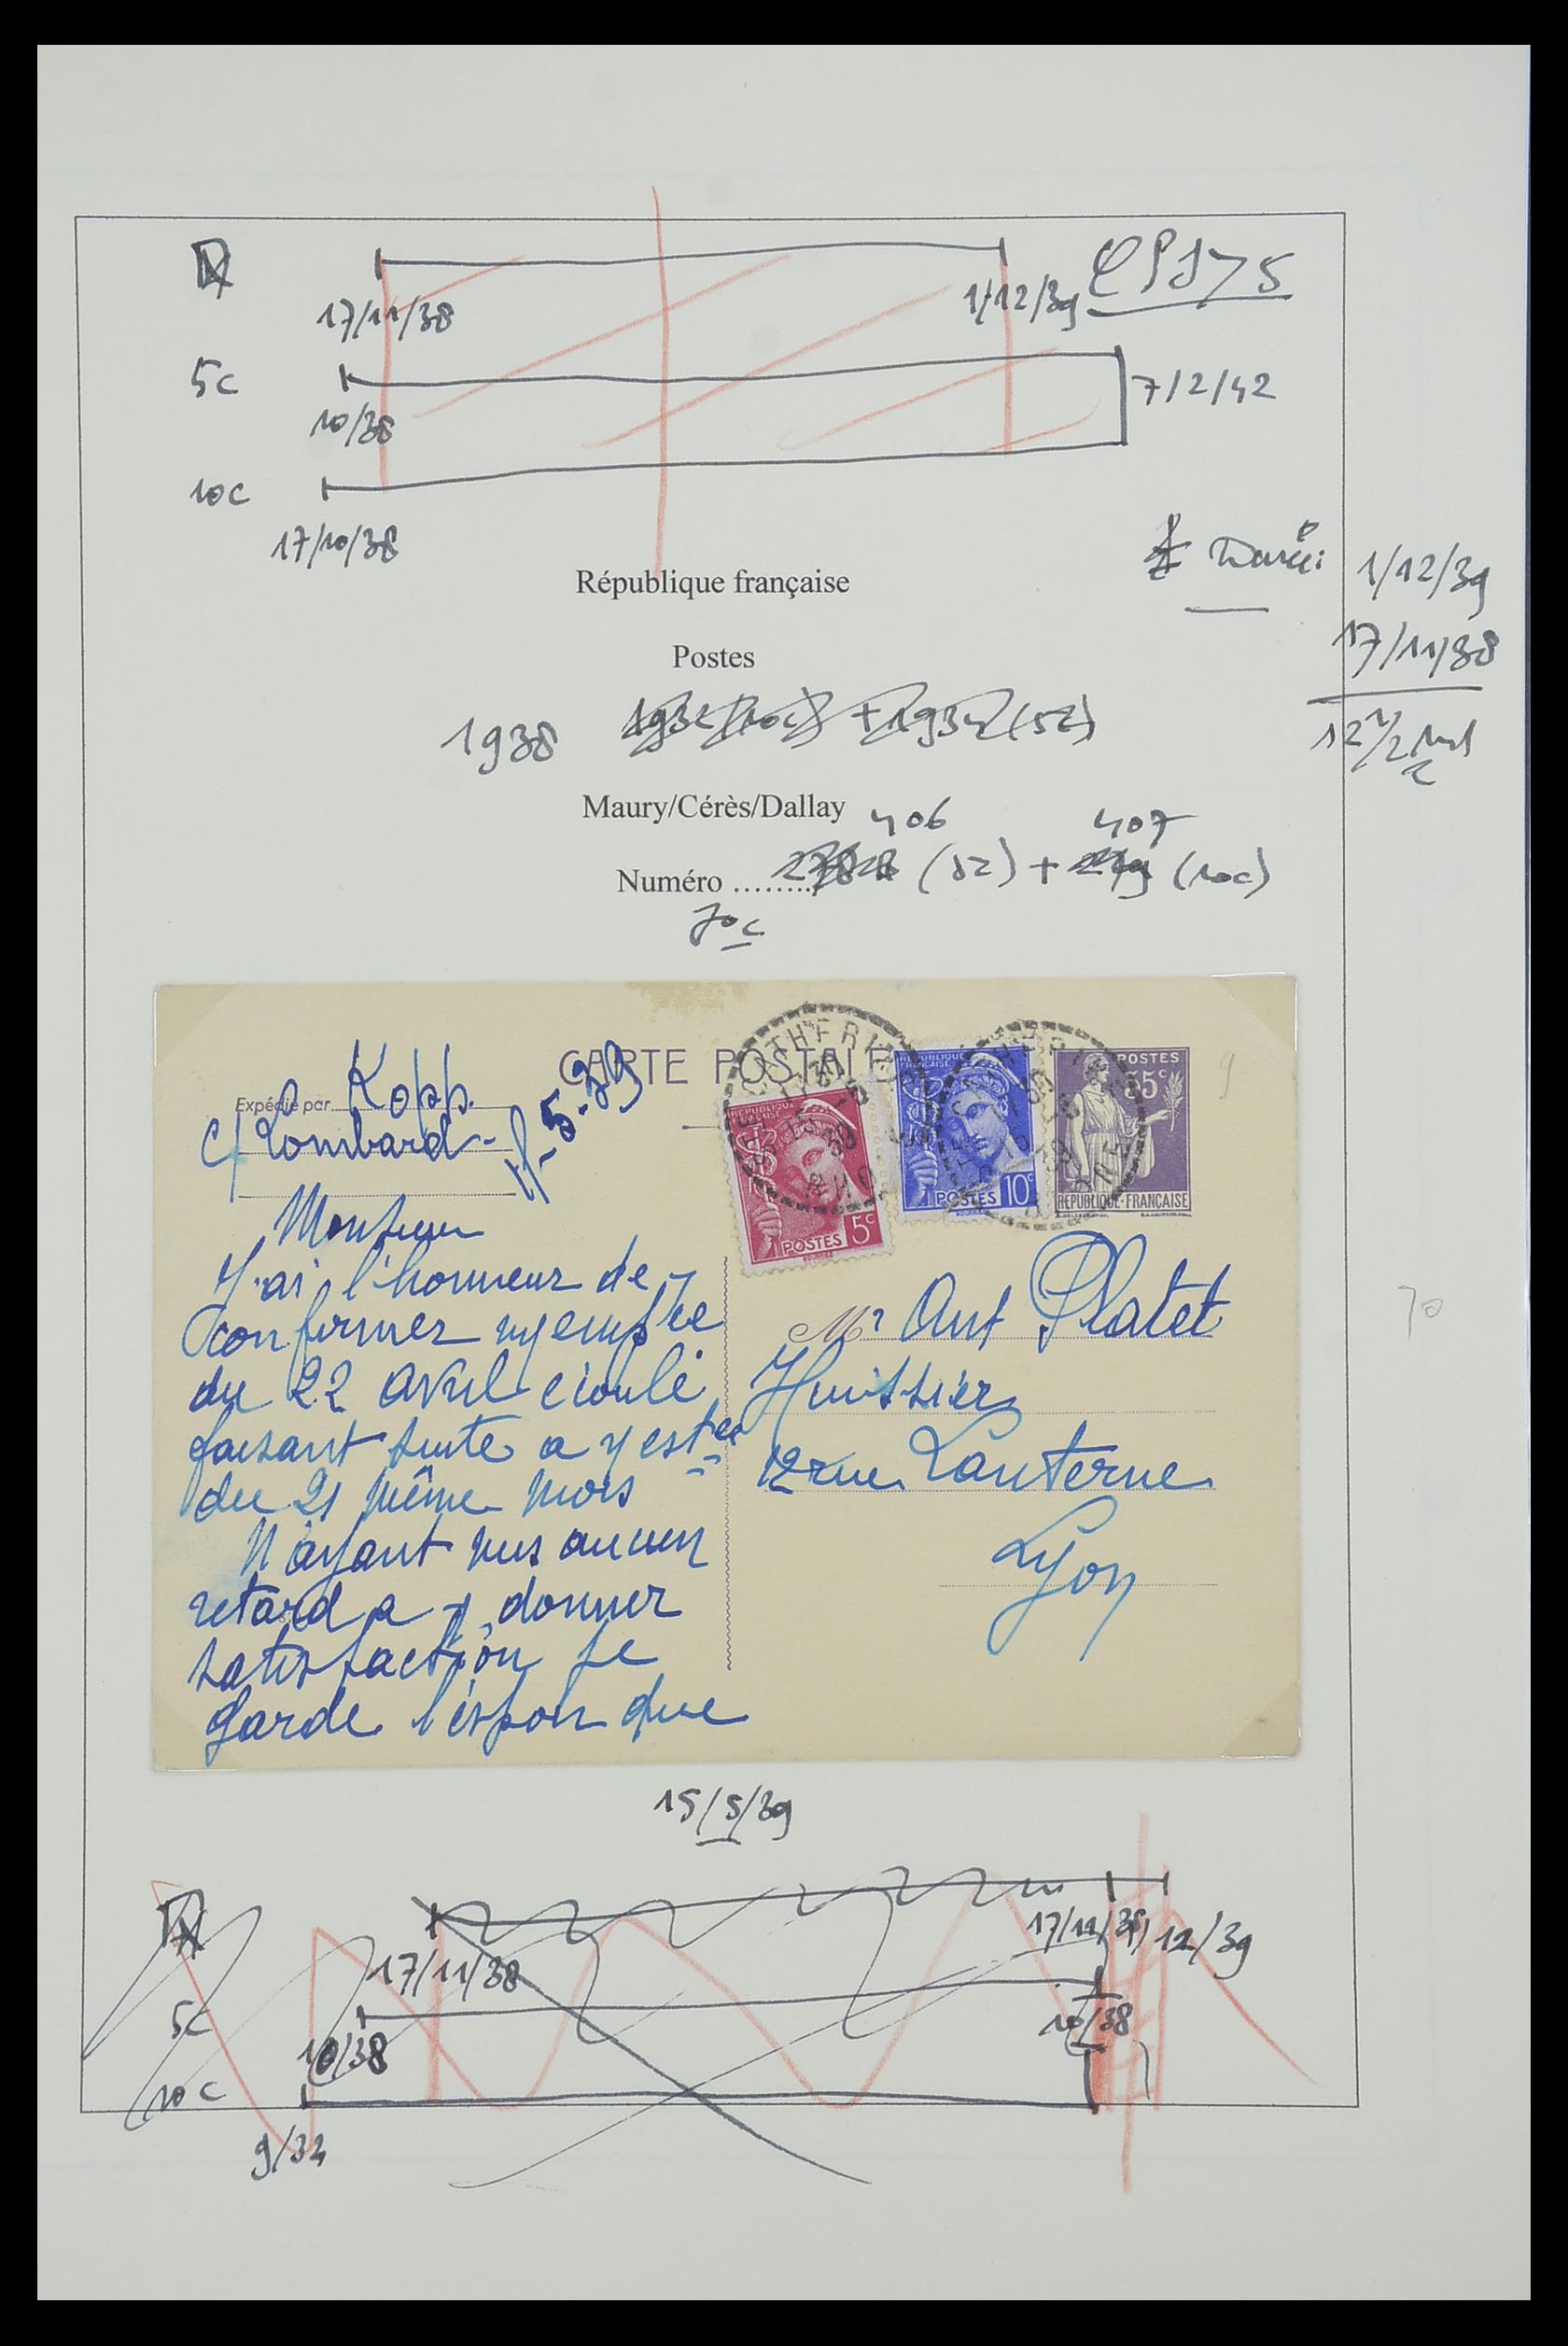 17/11/38
1/12/39
5c
10/38
7/2/42
10c
17/10/38
République française
Durée:
1/12/39
17/11/38
Postes
1938
Maury/Cérès/Dallay
406
407
Numéro ........
(5c) + (10c)
70c
CARTE POSTALE
Expédié par Kopp
c/ Lombard
Monsieur
J'ai l'honneur de
confirmer
du 22 avril écoulé
faisant suite a
du 21 même mois
N'ayant mis aucun
retard a y donner
satisfaction je
garde l'espoir que
REPUBLIQUE FRANÇAISE
POSTES 5c
REPUBLIQUE FRANÇAISE
POSTES 10c
POSTES
55c
REPUBLIQUE-FRANÇAISE
Mr Ant Platet
Huissier
12 rue Lanterne
Lyon
70
15/5/39
17/11/38
12/39
17/11/38
5c
10/38
10/38
10c